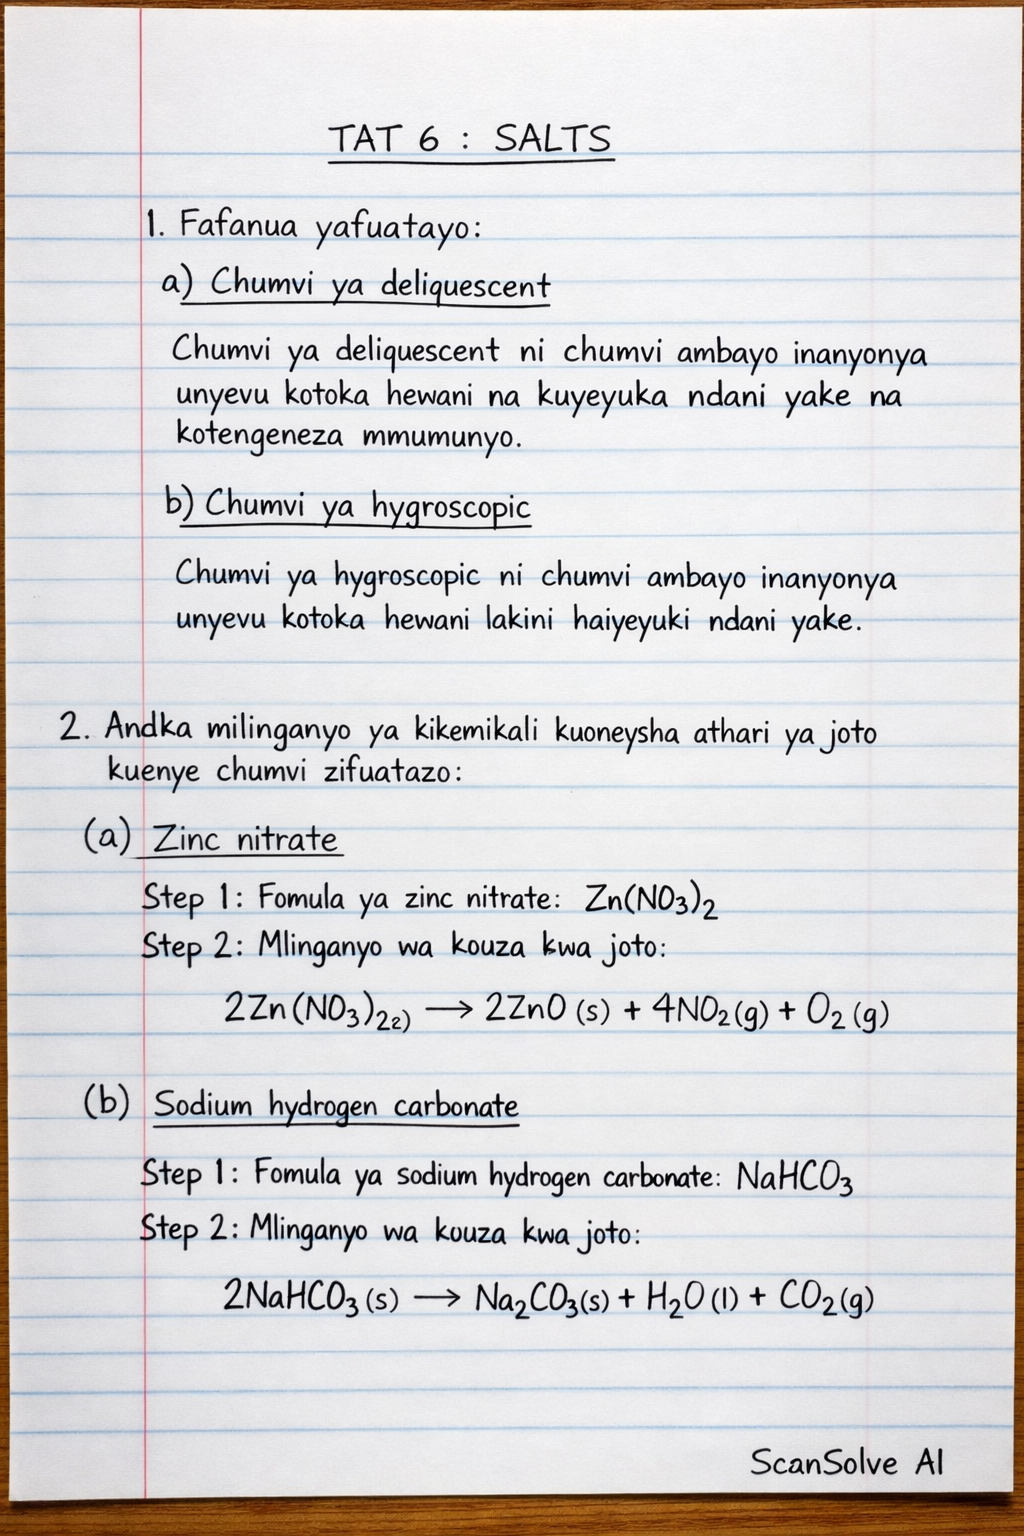 TAT 6 : SALTS
1. Fafanua yafuatayo:
a) Chumvi ya deliquescent
Chumvi ya deliquescent ni chumvi ambayo inanyonya
unyevu kotoka hewani na kuyeyuka ndani yake na
kotengeneza mmumunyo.
b) Chumvi ya hygroscopic
Chumvi ya hygroscopic ni chumvi ambayo inanyonya
unyevu kotoka hewani lakini haiyeyuki ndani yake.
2. Andka milinganyo ya kikemikali kuoneysha athari ya joto
kuenye chumvi zifuatazo:
(a) Zinc nitrate
Step 1: Fomula ya zinc nitrate: Zn(NO₃)₂
Step 2: Mlinganyo wa kouza kwa joto:
2Zn(NO₃)₂₂) → 2ZnO (s) + 4NO₂(g) + O₂ (g)
(b) Sodium hydrogen carbonate
Step 1: Fomula ya sodium hydrogen carbonate: NaHCO₃
Step 2: Mlinganyo wa kouza kwa joto:
2NaHCO₃ (s) → Na₂CO₃(s) + H₂O (l) + CO₂(g)
ScanSolve AI